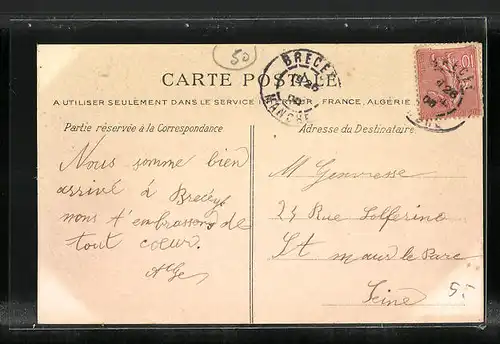 50
BRECEY
MANCHE
CARTE POSTALE
A UTILISER SEULEMENT DANS LE SERVICE FRANCE, ALGÉRIE
Partie réservée à la Correspondance
Adresse du Destinataire
Nous somme bien
arrivé à Brecey
nous t'embrassons de
tout coeur.
M Genvresse
25 Rue Solferino
St maur le Parc
Seine
5.-
10